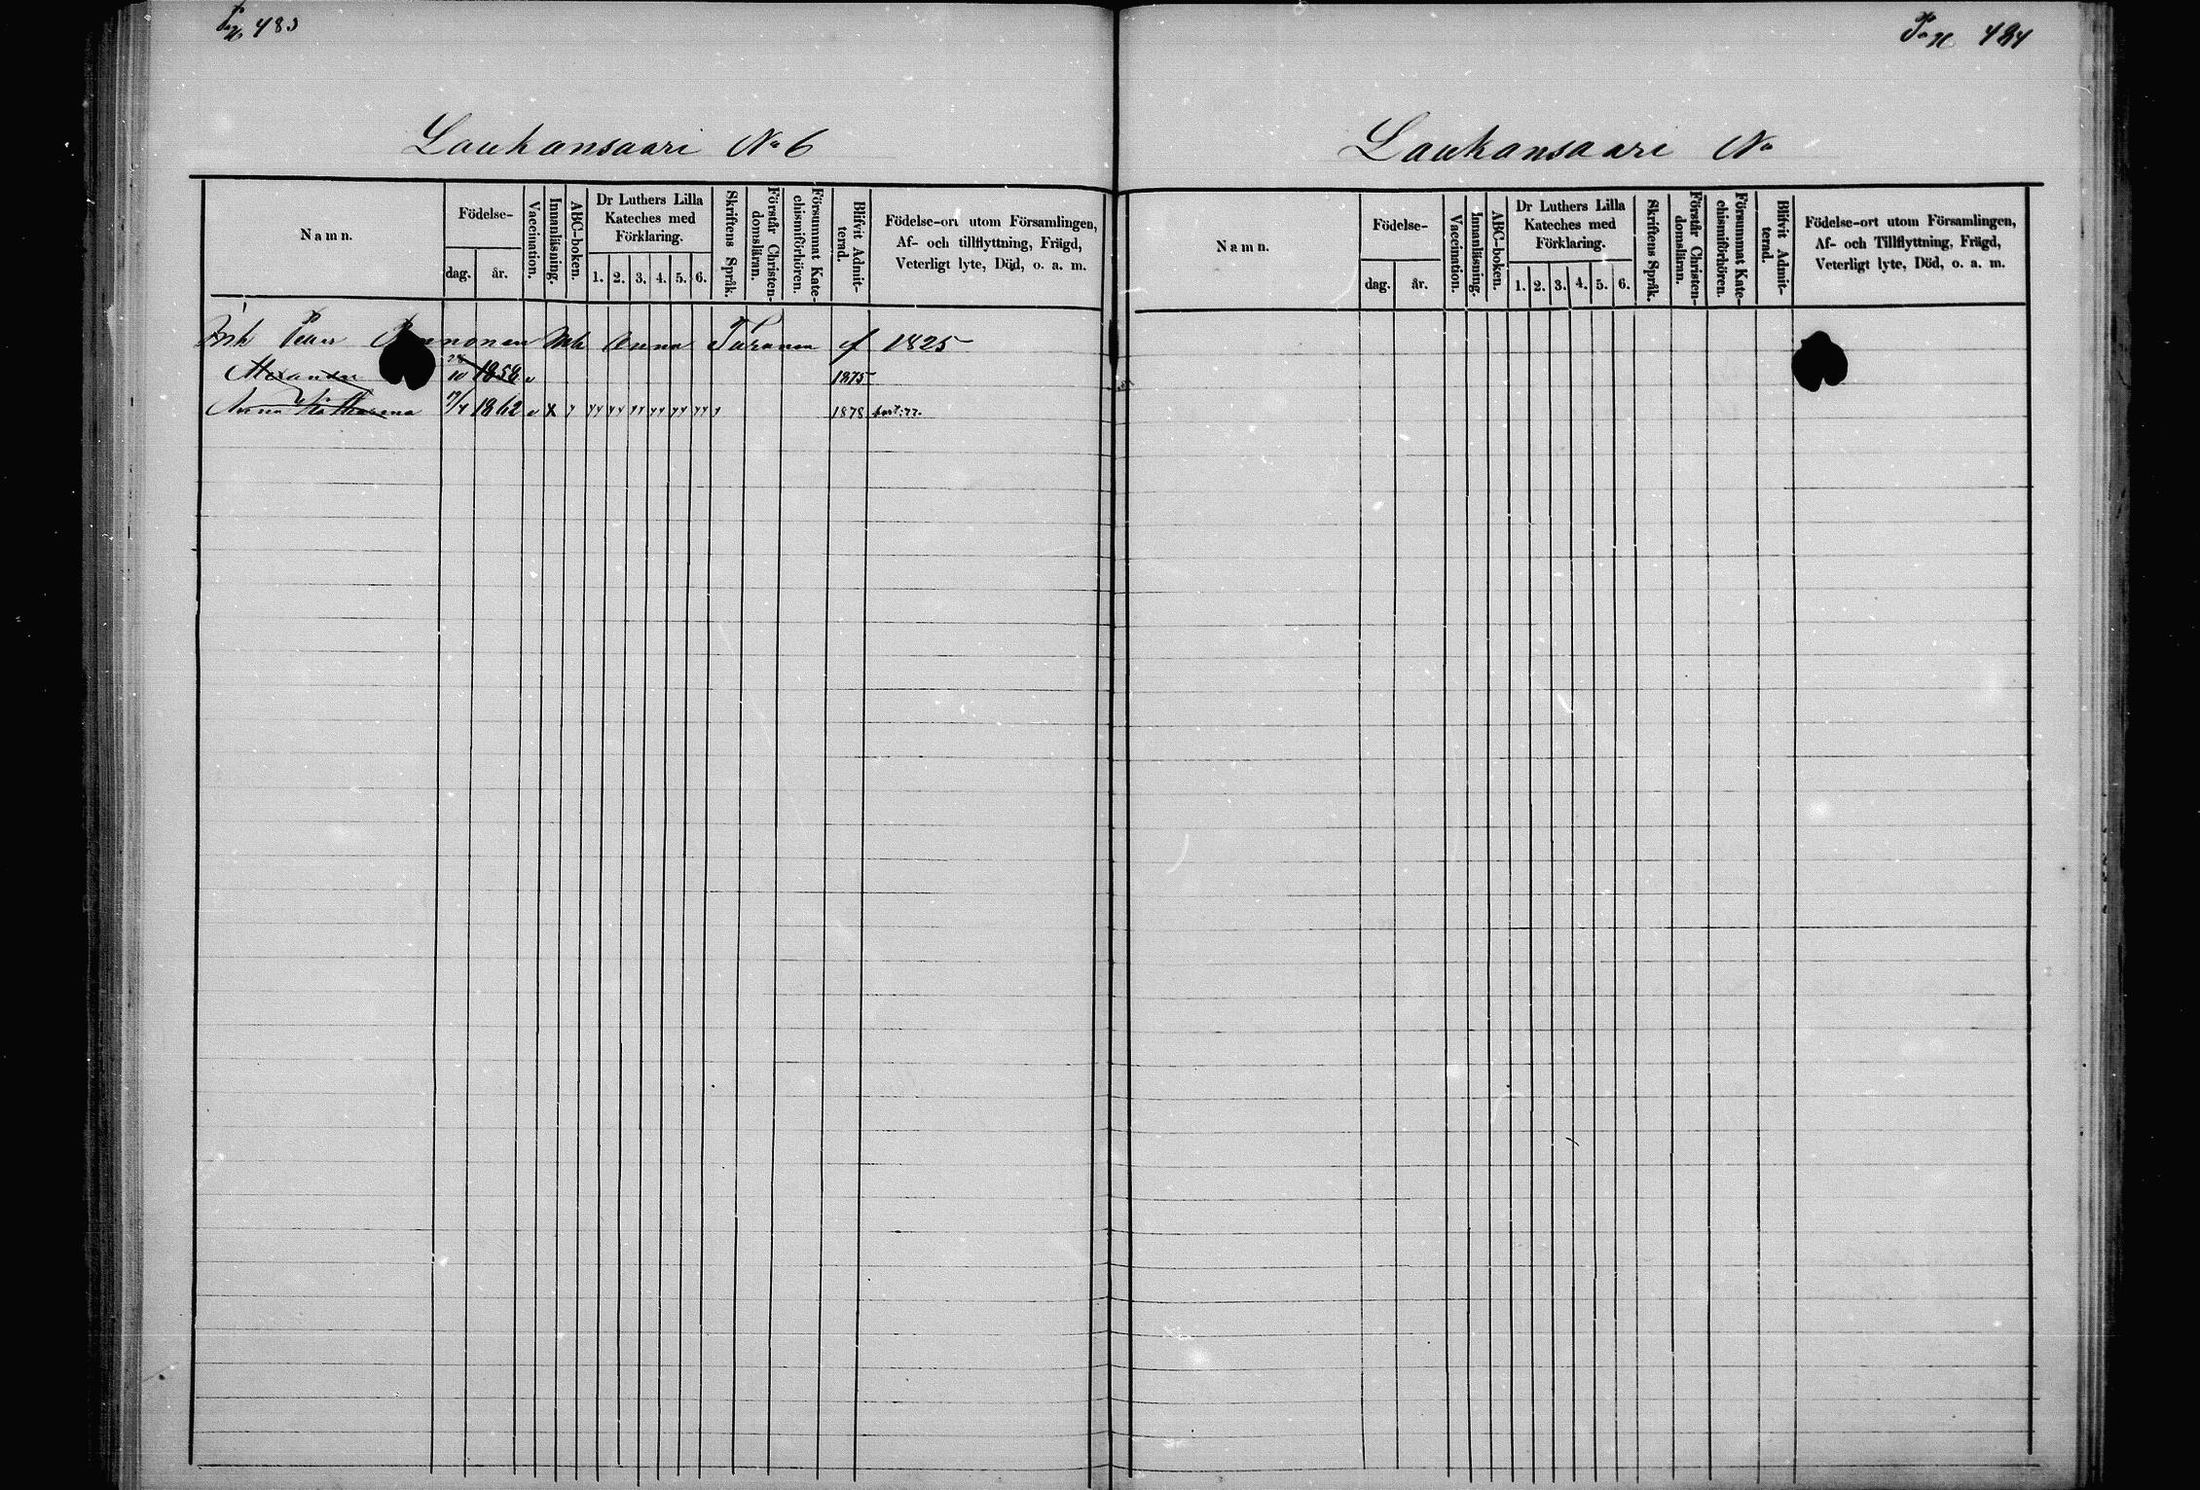 Pag 483
Laukansaari No 6
Namn.
Födelse-
dag. år.
Vaccination.
Innanläsning.
ABC-boken.
Dr Luthers Lilla
Kateches med
Förklaring.
1. 2. 3. 4. 5. 6.
Skriftens Språk.
Förstår Christen-
domsläran.
Försummat Kate-
chismiförhören.
Blifvit Admit-
terad.
Födelse-ort utom Församlingen,
Af- och tillflyttning, Frägd,
Veterligt lyte, Död, o. a. m.
Petter nonen Anna f 1825
Alexander 10 1858 v 1875
Anna Katharina 1862 v x 1878
Pag 484
Laukansaari No
Namn.
Födelse-
dag. år.
Vaccination.
Innanläsning.
ABC-boken.
Dr Luthers Lilla
Kateches med
Förklaring.
1. 2. 3. 4. 5. 6.
Skriftens Språk.
Förstår Christen-
domsläran.
Försummat Kate-
chismiförhören.
Blifvit Admit-
terad.
Födelse-ort utom Församlingen,
Af- och Tillflyttning, Frägd,
Veterligt lyte, Död, o. a. m.